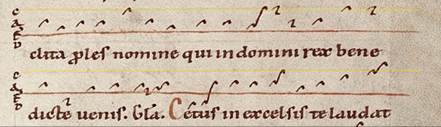 clita ꝓles nomine qui in domini rex bene
dicte venis. Gla. Cetus in excelsis te laudat